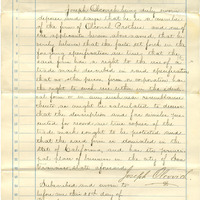 Joseph Olcovich being duly sworn
deposes and says that he is a member
of the firm of Olcovich Brothers and
the applicants herein above named that he
verily believes that the facts set forth in the
foregoing specification are true, that the
said firm has a right to the use of a
trade mark described in said specification
that no other person firm or corporation has
the right to such use either in the identical
form or in any such near resemblance
thereto as might be calculated to deceive
that the description and fac similes presented
for record are true copies of the
trade mark sought to be protected and
that the said firm is domiciled in the
State of California, and has its principal
place of business in the city of San
Francisco State aforesaid
Joseph Olcovich
Subscribed and sworn to
before me this day of